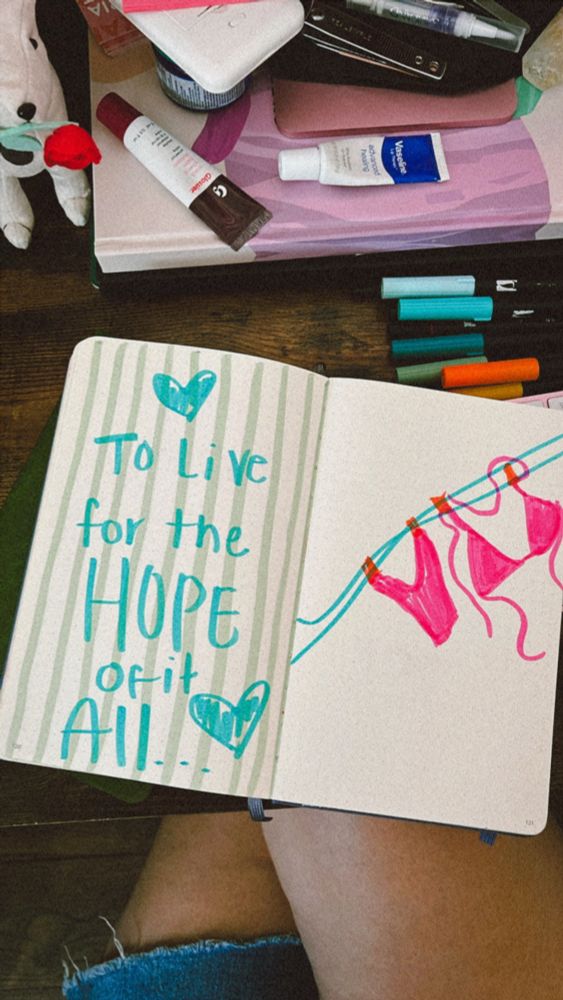 Glossier.
G
advanced
healing
Vaseline
To Live
for the
HOPE
of it
All...
121